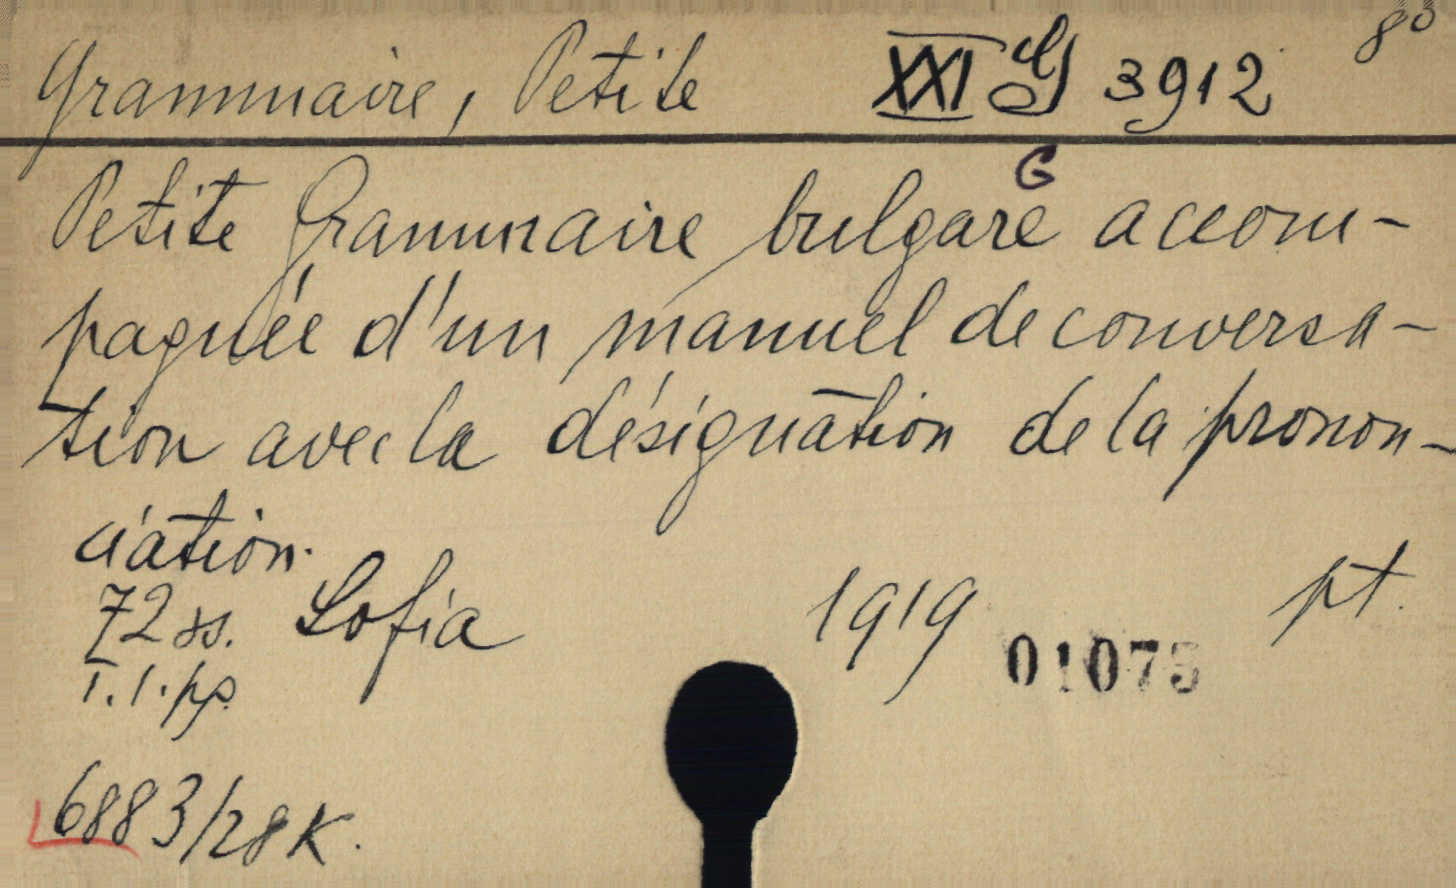 Grammaire, Petite XXI G 3912 8°
G
Petite Grammaire bulgare accom-
pagnée d'un manuel de conversa-
tion avec la désignation de la pronon-
ciation.
72 ss. Sofia 1919 pt.
T.1.pp.
01075
6883/28K.